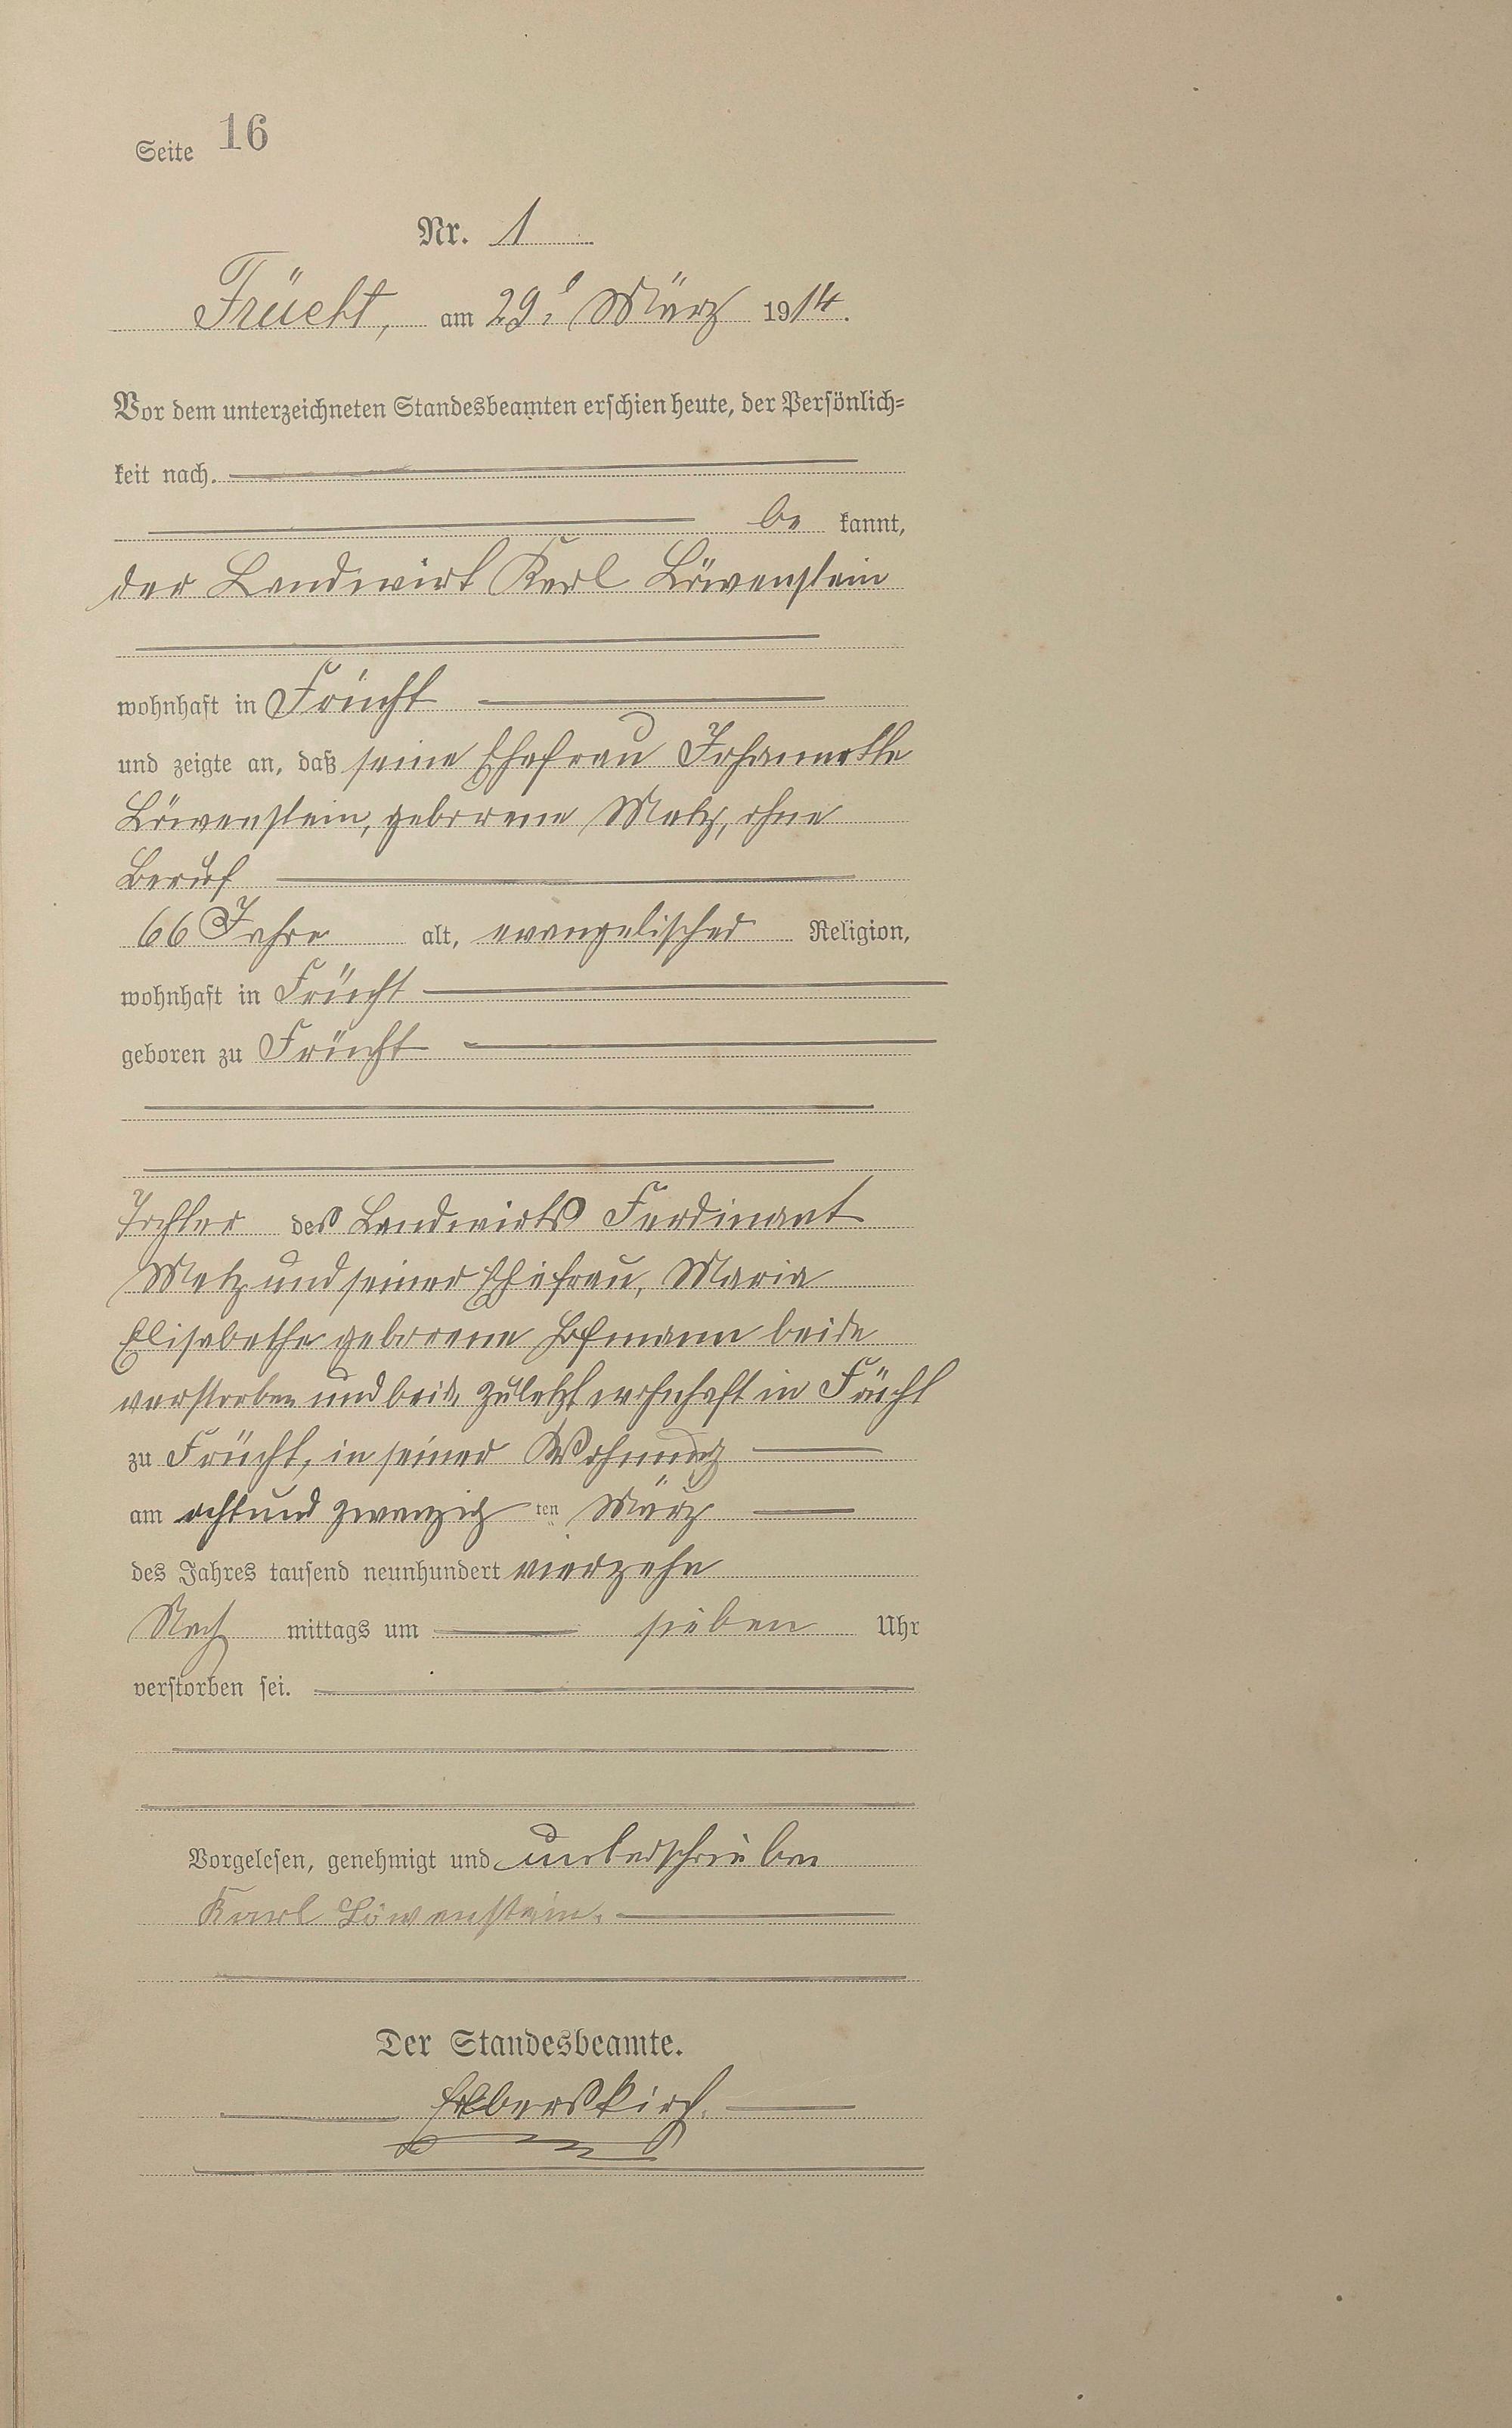 Seite 16
Nr. 1
Frücht, am 29. März 1914.
Vor dem unterzeichneten Standesbeamten erschien heute, der Persönlich-
keit nach
be kannt,
der Landwirt Karl Löwenstein
wohnhaft in Frücht
und zeigte an, daß seine Ehefrau Johannette
Löwenstein, geborene Metz, ohne
Beruf
66 Jahre alt, evangelischer Religion,
wohnhaft in Frücht
geboren zu Frücht
Tochter des Landwirts Ferdinant
Metz und seiner Ehefrau, Maria
Elisabethe geborene Hofmann beide
verstorben und beide zuletzt wohnhaft in Frücht
zu Frücht, in seiner Wohnung
am achtund zwanzig ten März
des Jahres tausend neunhundert vierzehn
Nach mittags um sieben Uhr
verstorben sei.
Vorgelesen, genehmigt und unterschrieben
Karl Löwenstein.
Der Standesbeamte.